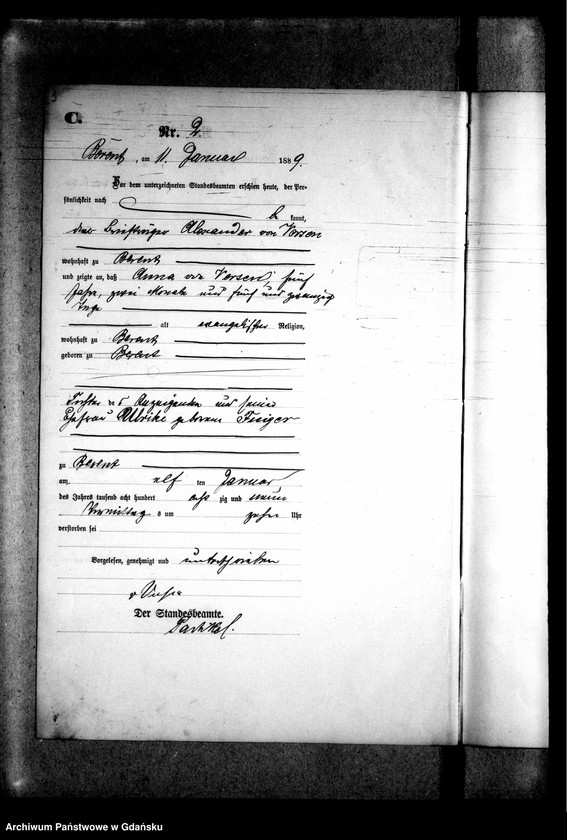 C.
Nr. 2.
Berent, am 11. Januar 1889.
Vor dem unterzeichneten Standesbeamten erschien heute, der Per-
sönlichkeit nach
be kannt,
der Briefträger Alexander von Versen
wohnhaft zu Berent
und zeigte an, daß Anna von Versen, fünf
Jahre, zwei Monate und fünf und zwanzig
Tage
alt evangelischer Religion,
wohnhaft zu Berent
geboren zu Berent
Tochter des Anzeigenden und seiner
Ehefrau Ulrike geborene
zu Berent
am elf ten Januar
des Jahres tausend acht hundert acht zig und neun
Vormittags um zehn Uhr
verstorben sei
Vorgelesen, genehmigt und unterschrieben
v Versen
Der Standesbeamte.
Archiwum Państwowe w Gdańsku